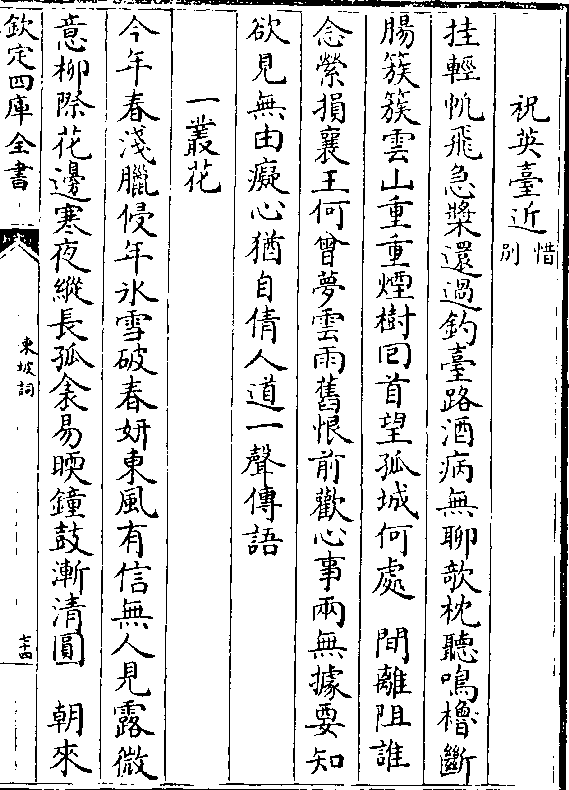 祝英臺近惜別
挂輕帆飛急槳還過釣臺路酒病無聊欹枕聽鳴櫓斷
腸簇簇雲山重重煙樹囘首望孤城何處　間離阻誰
念縈損襄王何曾夢雲雨舊恨前歡心事兩無據要知
欲見無由癡心猶自倩人道一聲傳語
一叢花
今年春淺臘侵年氷雪破春妍東風有信無人見露微
意柳際花邊寒夜縱長孤衾易暖鐘鼓漸清圓　朝來
欽定四庫全書
東坡詞
七十四